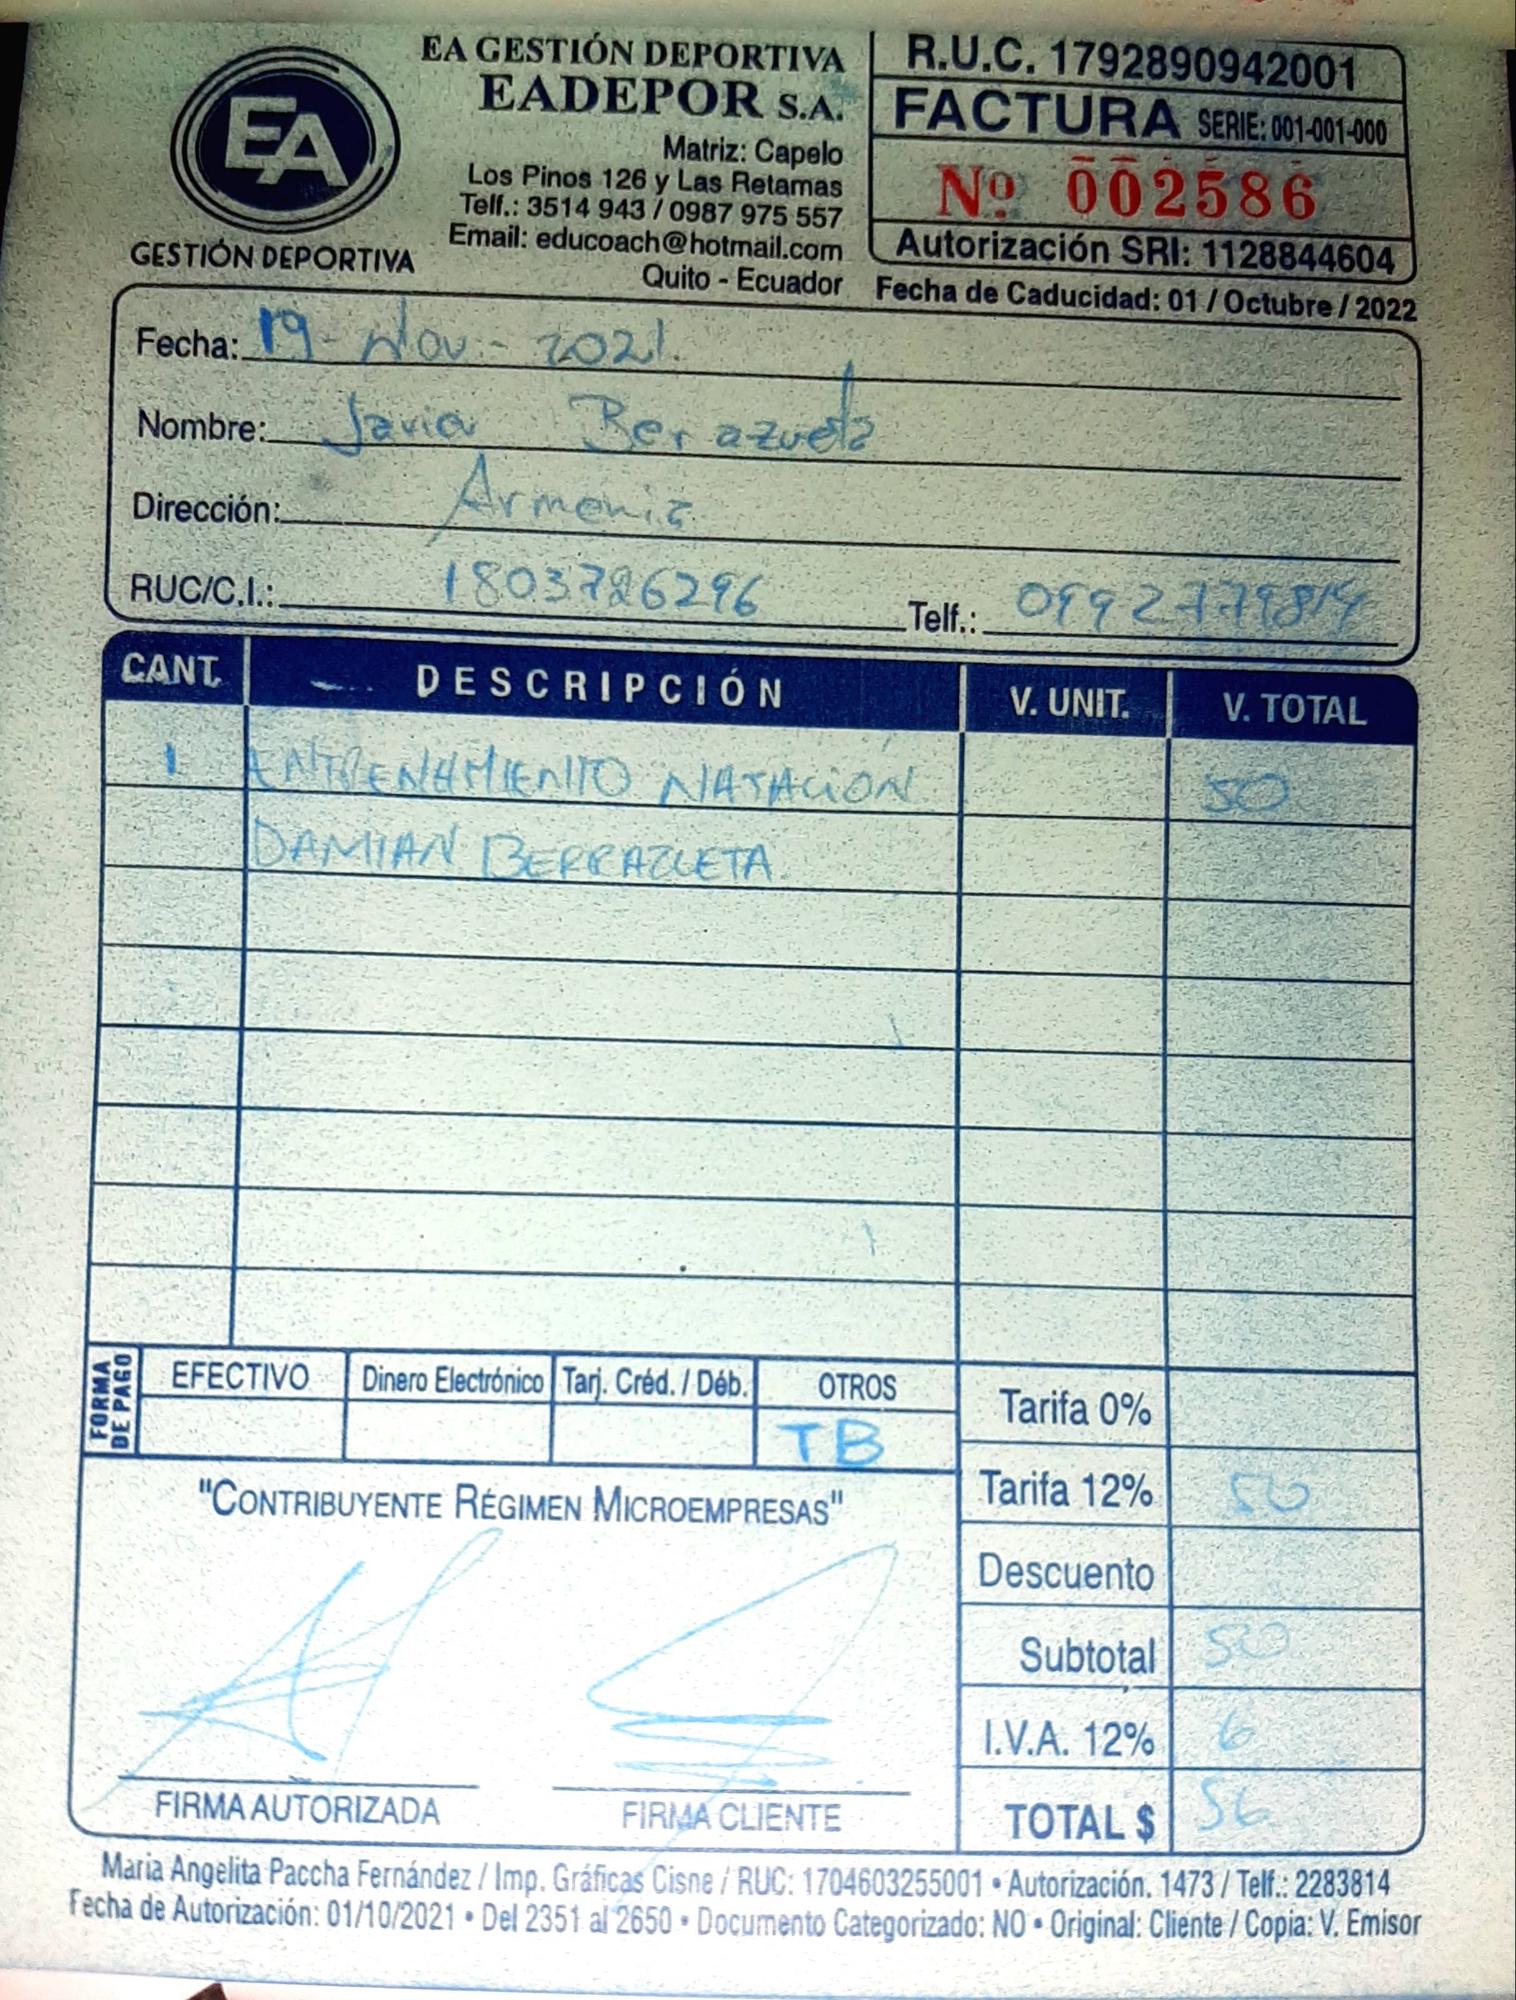 EA
GESTIÓN DEPORTIVA
EA GESTIÓN DEPORTIVA
EADEPOR S.A.
Matriz: Capelo
Los Pinos 126 y Las Retamas
Telf.: 3514 943 / 0987 975 557
Email: educoach@hotmail.com
Quito - Ecuador
R.U.C. 1792890942001
FACTURA SERIE: 001-001-000
Nº 002586
Autorización SRI: 1128844604
Fecha de Caducidad: 01 / Octubre / 2022
Fecha: 19 - Nov - 2021.
Nombre: Javier
Dirección: Armenia
RUC/C.I.: 1803726296 Telf.:
CANT. DESCRIPCIÓN V. UNIT. V. TOTAL
1 ENTRENAMIENTO NATACIÓN 50
DAMIAN BERRAZUETA.
FORMA DE PAGO
EFECTIVO Dinero Electrónico Tarj. Créd. / Déb. OTROS
TB
Tarifa 0%
Tarifa 12% 50
Descuento
Subtotal 50
I.V.A. 12% 6
TOTAL $ 56
"CONTRIBUYENTE RÉGIMEN MICROEMPRESAS"
FIRMA AUTORIZADA FIRMA CLIENTE
Maria Angelita Paccha Fernández / Imp. Gráficas Cisne / RUC: 1704603255001 • Autorización. 1473 / Telf.: 2283814
Fecha de Autorización: 01/10/2021 • Del 2351 al 2650 • Documento Categorizado: NO • Original: Cliente / Copia: V. Emisor